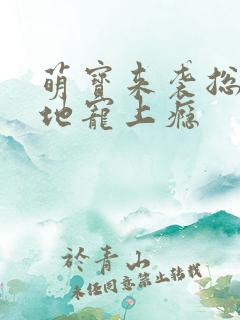 萌寶来袭总
地寵上瘾
於青山
未经同意禁止转载